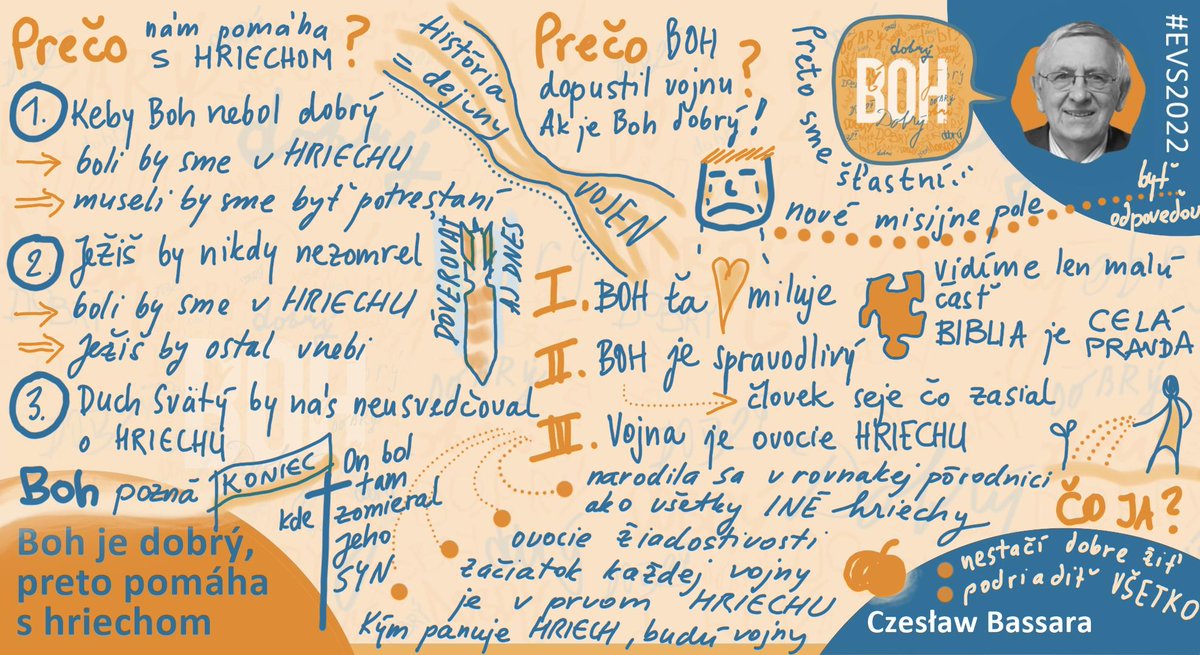 Prečo nám pomáha
s HRIECHOM?
1. Keby Boh nebol dobrý
boli by sme v HRIECHU
museli by sme byť potrestaní
2. Ježiš by nikdy nezomrel
boli by sme v HRIECHU
Ježiš by ostal vnebi
3. Duch Svätý by nás neusvedčoval
o HRIECHU
Boh pozná
KONIEC
kde
On bol
tam
zomieral
jeho
SYN
Boh je dobrý,
preto pomáha
s hriechom
História
= dejiny
VOJEN
DÔVEROVAŤ
Prečo BOH
dopustil vojnu?
Ak je Boh dobrý!
Preto sme
šťastní
dobrý
BOH
Dobrý
#EVS2022
nové misijne pole
byť
odpoveďou
I. BOH ťa miluje
II. BOH je spravodlivý
človek seje čo zasial
III. Vojna je ovocie HRIECHU
narodila sa v rovnakej pôrodnici
ako všetky INÉ hriechy
ovocie žiadostivosti
začiatok každej vojny
je v prvom HRIECHU
Kým panuje HRIECH, budú vojny
Vidíme len malú
časť
BIBLIA je CELÁ
PRAVDA
ČO JA?
nestačí dobre žiť
podriadiť VŠETKO
Czesław Bassara